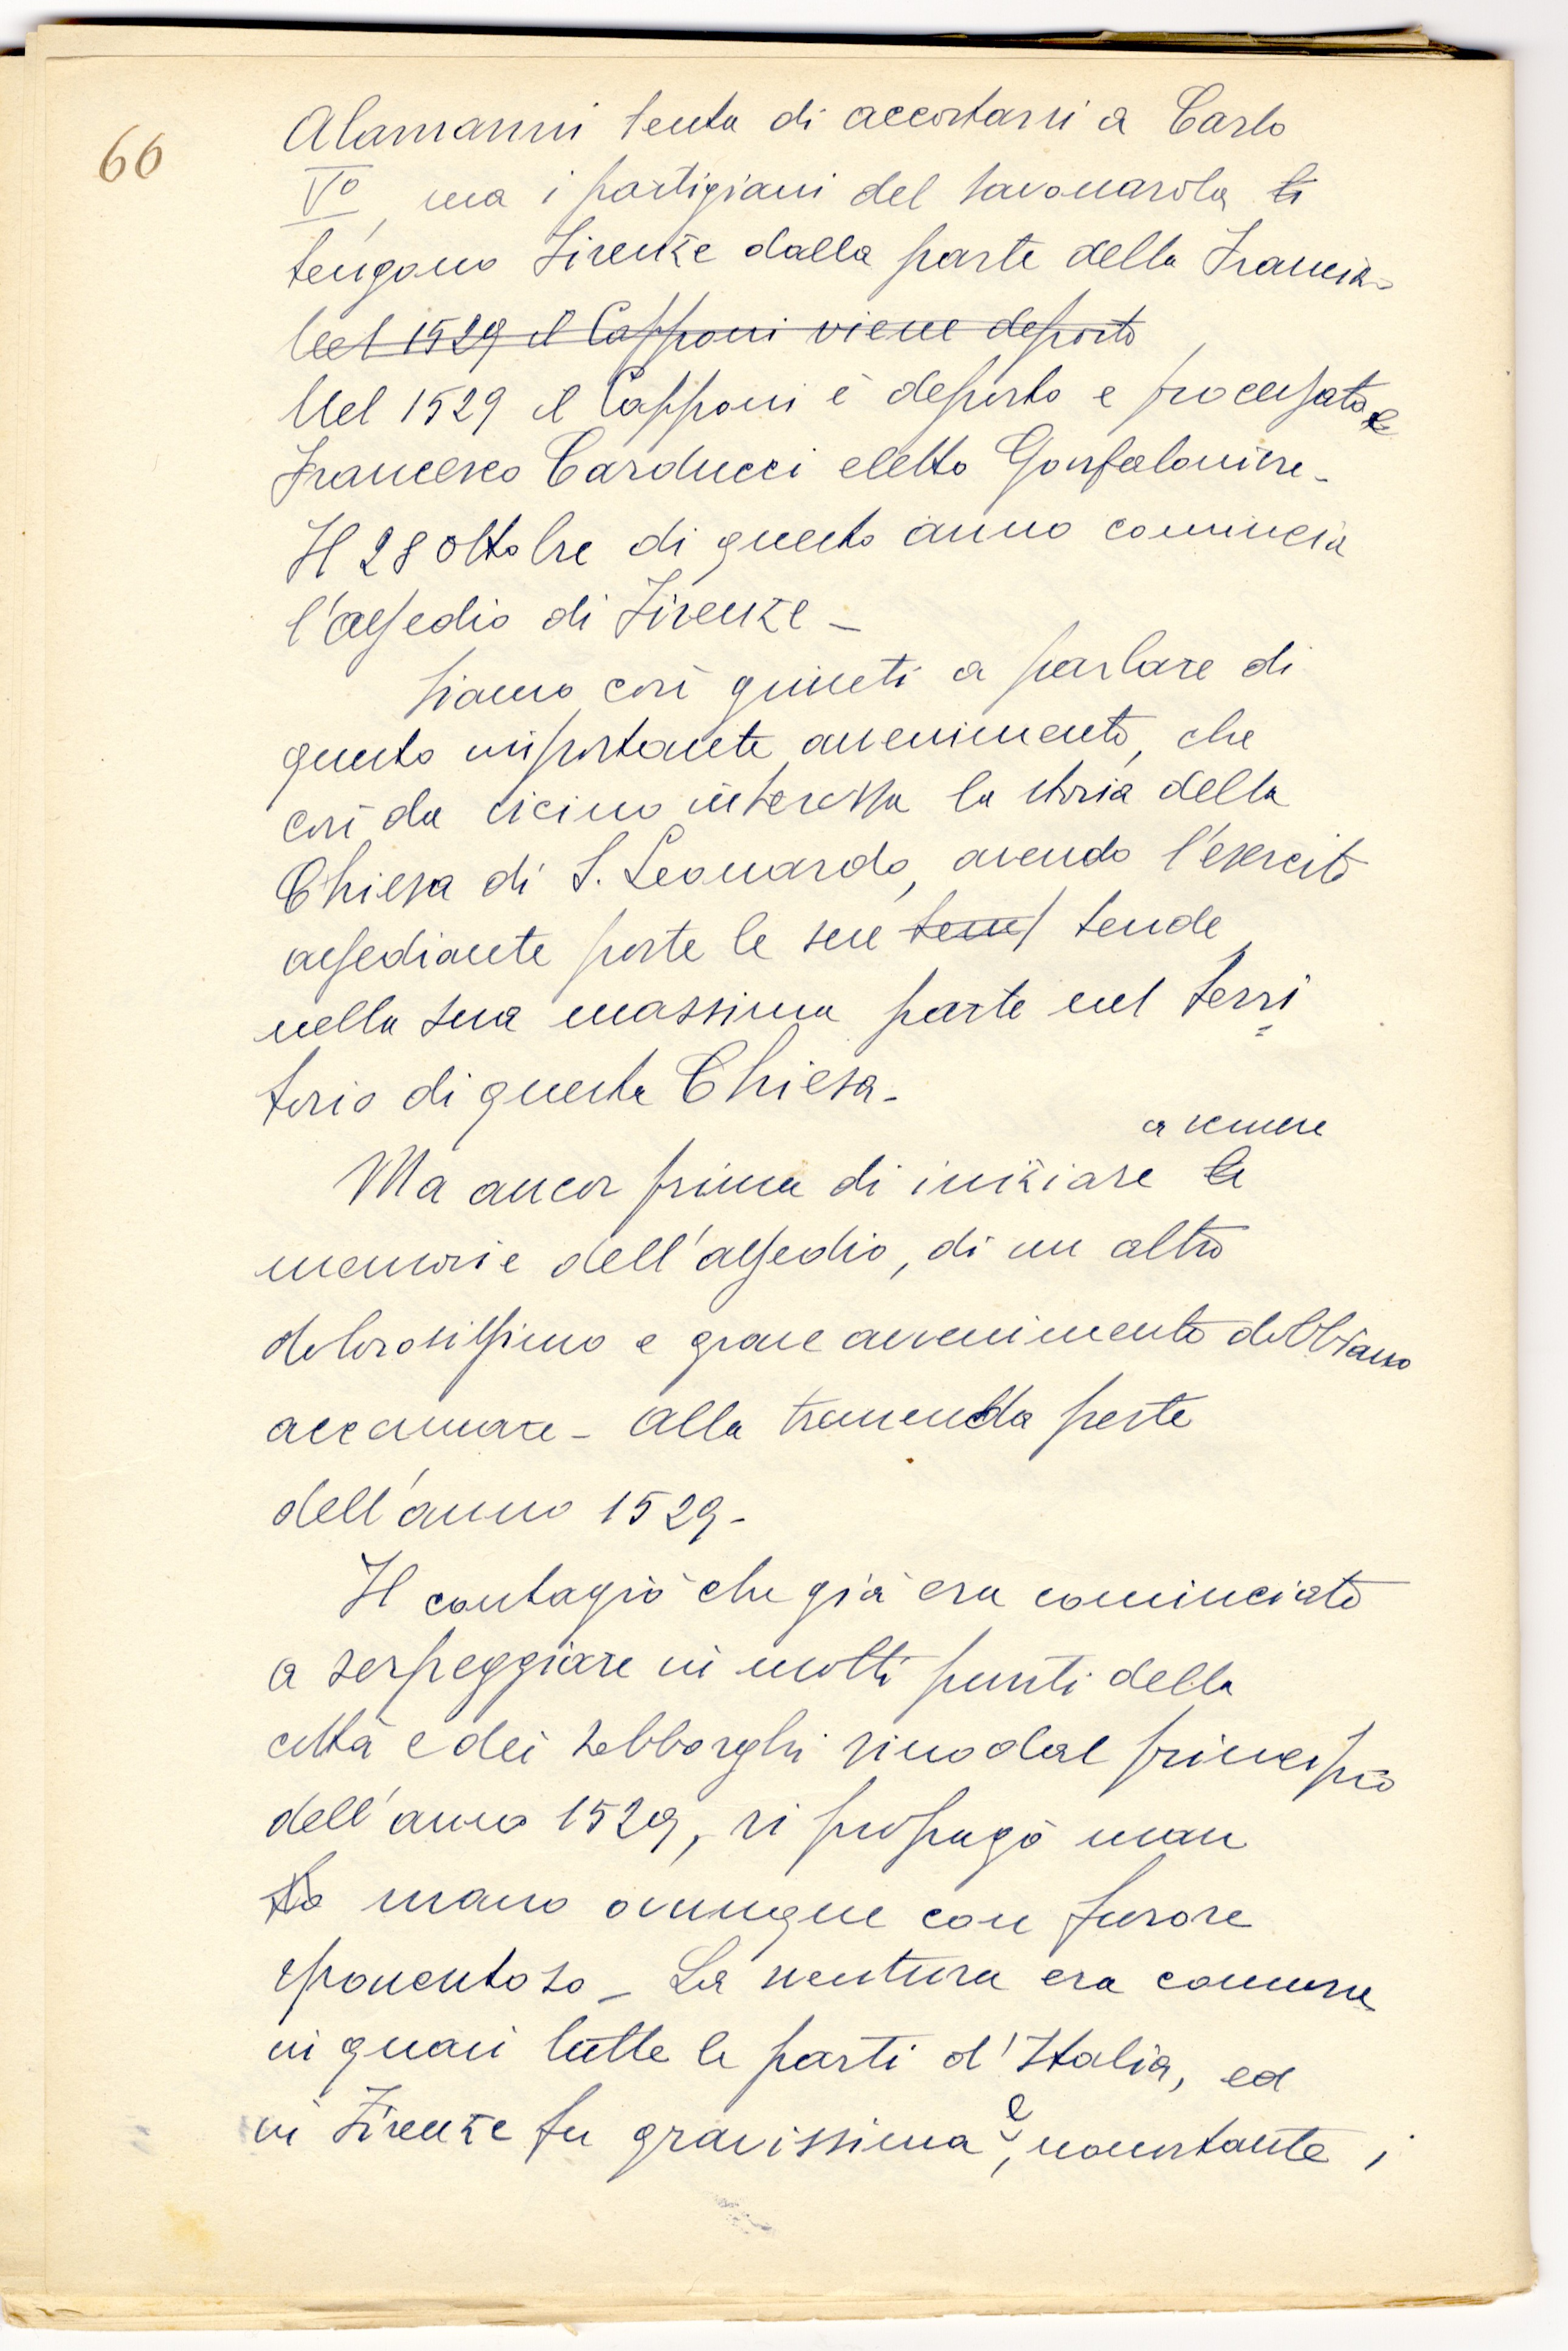 66
Alamanni tenta di accostarsi a Carlo
V°, ma i partigiani del Savonarola ti
tengono Firenze dalla parte della Francia-
Nel 1529 il Capponi viene deposto
Nel 1529 il Capponi è deposto e processato e
Francesco Carducci eletto Gonfaloniere-
Il 28 Ottobre di questo anno comincia
l'assedio di Firenze-
Siamo così giunti a parlare di
questo importante avvenimento, che
così da vicino interessa la storia della
Chiesa di S. Leonardo, avendo l'esercito
assediante poste le sue tend tende
nella sua massima parte nel terri=
torio di questa Chiesa-
a scrivere
Ma ancor prima di iniziare le
memorie dell'assedio, di un altro
dolorosissimo e grave avvenimento dobbiamo
accennare- alla tremenda peste
dell'anno 1529-
Il contagio che già era cominciato
a serpeggiare in molti punti della
città e dei sobborghi sino dal principio
dell'anno 1529, si propagò man
mano ovunque con furore
spaventoso- La sventura era comune
in quasi tutte le parti d'Italia, ed
in Firenze fu gravissima e, nonostante i